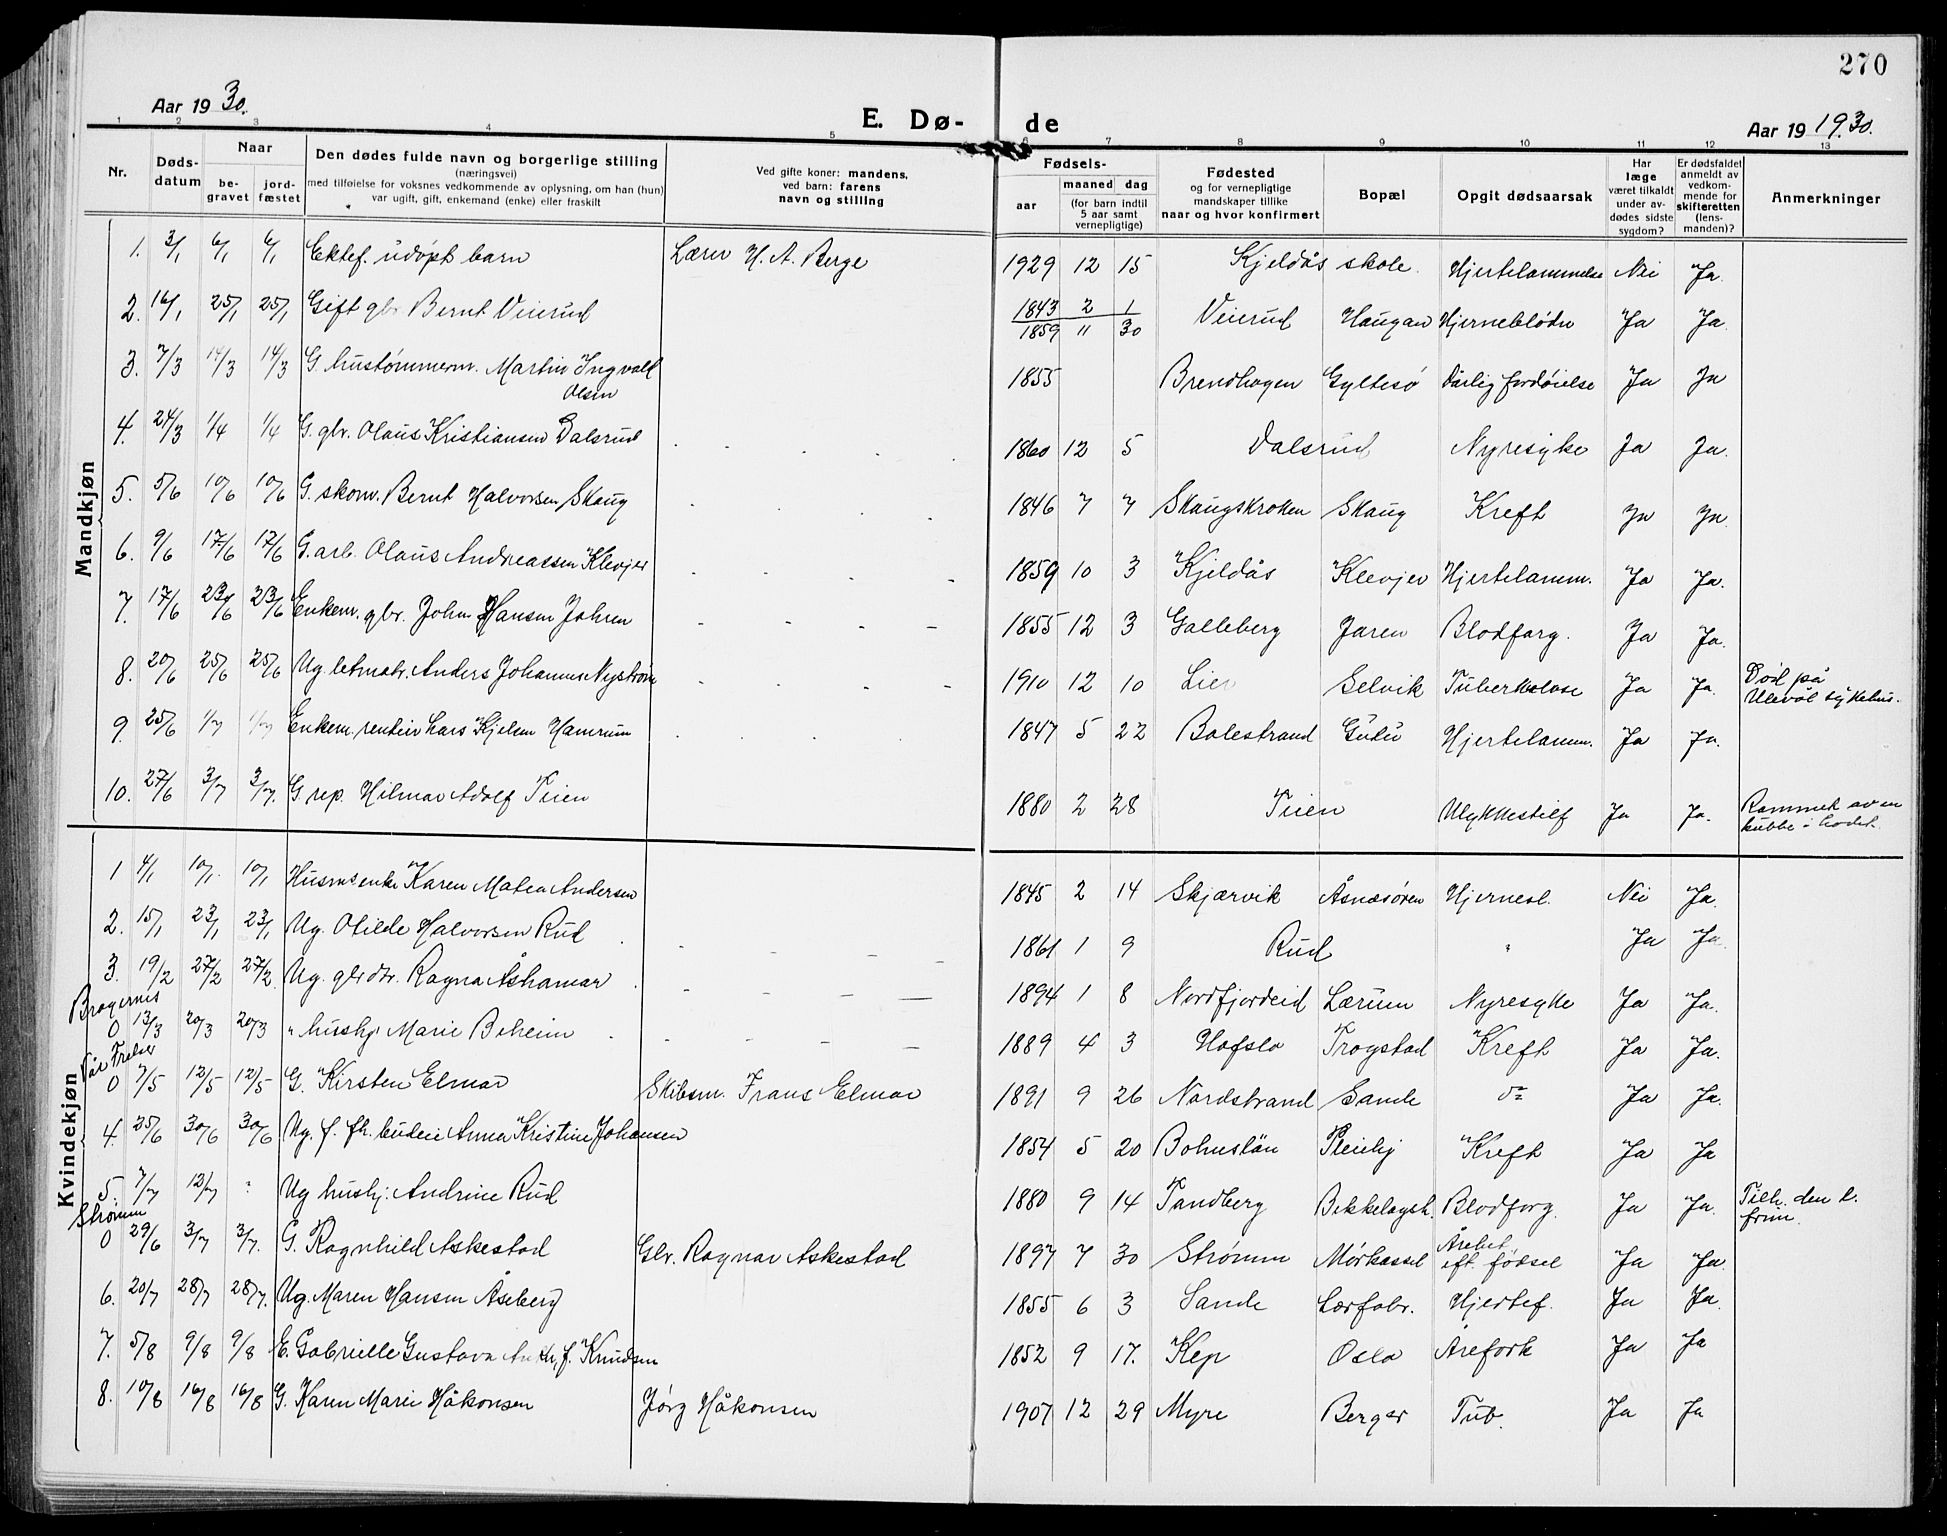 270
Aar 1930.
E. Dø- de
Aar 19 1930.
1 2 3 4 5 6 7 8 9 10 11 12 13
Nr.
Døds-
datum
Naar
be-
gravet
jord-
fæstet
Den dødes fulde navn og borgerlige stilling
(næringsvei)
med tilføielse for voksnes vedkommende av oplysning, om han (hun)
var ugift, gift, enkemand (enke) eller fraskilt
Ved gifte koner: mandens,
ved barn: farens
navn og stilling
Fødsels-
aar
maaned dag
(for barn indtil
5 aar samt
vernepligtige)
Fødested
og for vernepligtige
mandskaper tillike
naar og hvor konfirmert
Bopæl
Opgit dødsaarsak
Har
læge
været tilkaldt
under av-
dødes sidste
sygdom?
Er dødsfaldet
anmeldt av
vedkom-
mende for
skifteretten
(lens-
manden)?
Anmerkninger
Mandkjøn
1. 3/1 6/1 6/1 Ektef. udøpt barn Lærer H. A. Berge 1929 12 15 Kjeldås skole. Hjertelammelse Nei Ja.
2. 16/1 25/1 25/1 Gift gbr Bernt Veierud 1843 2 1 Veierud Haugan Hjerneblødn Ja Ja.
1859 " 30
3. 7/3 14/3 14/3 G. hustømmerm. Martin Ingvald 1855 Brendhagen Gyltesø Dårlig fordøielse Ja Ja
Olsen
4. 24/3 1/4 1/4 G. gbr. Olaus Kristiansen Dalsrud 1860 12 5 Dalsrud Nyresyke Ja Ja.
5. 5/6 10/6 10/6 G. skom. Bernt Halvorsen Skaug 1846 7 7 Skaugskroken Skaug Kreft Ja Ja.
6. 9/6 17/6 17/6 G. arb. Olaus Andreassen Klevjer 1859 10 3 Kjeldås Klevjer Hjertelamm. Ja Ja.
7. 17/6 23/6 23/6 Enkem. gbr. John Hansen Jahren 1855 12 3 Galleberg Jaren Blodforg. Ja Ja.
8. 20/6 25/6 25/6 Ug. letmatr. Anders Johannes Nystrøm 1910 12 10 Lier Selvik Tuberkelose Ja Ja. Død på
Ulevål sykehus.
9. 25/6 1/7 1/7 Enkem. rentier Lars Kjelsen Hamrum 1847 5 22 Balestrand Gutu Hjertelamm. Ja Ja.
10. 27/6 3/7 3/7. G rep. Hilmar Adolf Teien 1880 2 28 Teien Ulykkestilf Ja Ja. Rammet av en
kubbe i hodet.
Kvindekjøn
1 4/1 10/1 10/1 Husmsenke Karen Matea Andersen 1845 2 14 Skjærvik Åsnæsøren Hjernesl. Nei Ja.
2. 15/1 23/1 23/1 Ug. Otilde Halvorsen Rud 1861 1 9 Rud " Ja Ja.
3. 19/2 27/2 27/2. Ug. gbrdtr. Ragna Åshamar 1894 1 8 Nordfjordeid Lærum Nyresyke Ja Ja.
Bragernes
0 13/3 20/3 20/3 " hushj. Marie Beheim 1889 4 3 Hofslo Trogstad Kreft Ja Ja.
Vår Frelser
0 7/5 12/5 12/5 G. Kirsten Elmar Skibsm. Frans Elmar 1891 9 26 Nordstrand Sande do Ja Ja.
4. 25/6 30/6 30/6 Ug. f. fh. budeie Anna Kristine Johansen 1854 5 20 Bohuslän Pleiehj Kreft Ja Ja
5. 7/7 12/7 " Ug hushj. Andrine Rud 1880 9 14 Tandberg Bekkelagsh. Blodforg. Ja Ja. Tilh. den l.
frim.
Strømm
0 29/6 3/7 3/7. G. Ragnhild Askestad Gbr. Ragnar Askestad 1897 7 30 Strømm Mørkassel Årebet. eft. fødsel Ja Ja.
6. 20/7 28/7 28/7. Ug. Maren Hansen Åseberg 1855 6 3 Sande Lærfabr. Hjertef. Ja Ja.
7. 5/8 9/8 9/8 E. Gabrielle Gustava f. Knudsen 1852 9 17. Kep Oslo Årefork Ja Ja
8. 10/8 16/8 16/8 G. Karen Marie Håkonsen Jørg Håkonsen 1907 12 29 Myre Berger Tub. Ja Ja